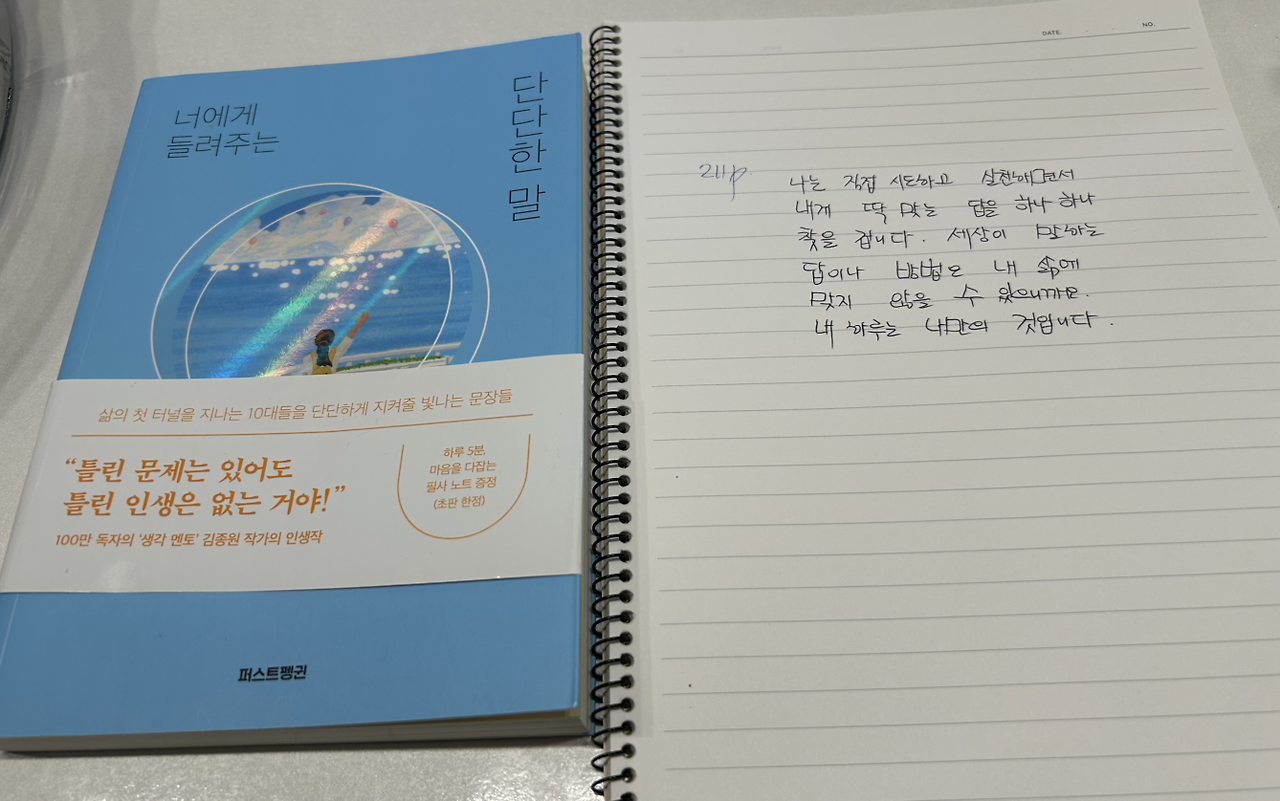 너에게
들려주는
단단한 말
삶의 첫 터널을 지나는 10대들을 단단하게 지켜줄 빛나는 문장들
“틀린 문제는 있어도
틀린 인생은 없는 거야!”
100만 독자의 ‘생각 멘토’ 김종원 작가의 인생작
하루 5분,
마음을 다잡는
필사 노트 증정
(초판 한정)
퍼스트펭귄
DATE.
NO.
211p.
나는 직접 시도하고 실천하면서
내게 딱 맞는 답을 하나 하나
찾을 겁니다. 세상이 말하는
답이나 방법은 내 삶에
맞지 않을 수 있으니까요.
내 하루는 나만의 것입니다.